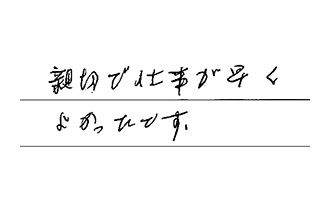 親切で仕事が早く
よかったです。